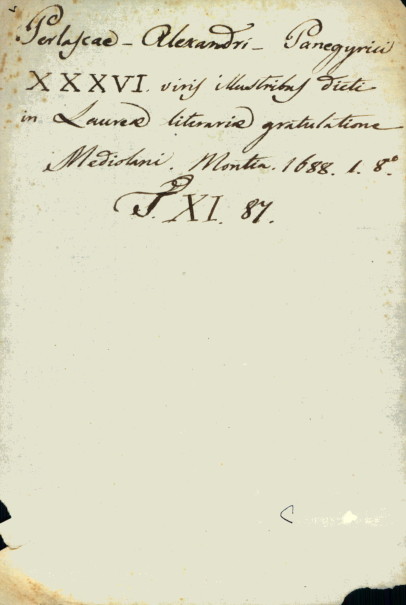 Perlascae - Alexandri - Panegyrici
XXXVI. viris illustribus dicti
in Laureæ literariæ gratulatione
Mediolani. Montia. 1688. 1. 8.º
P. XI. 87.